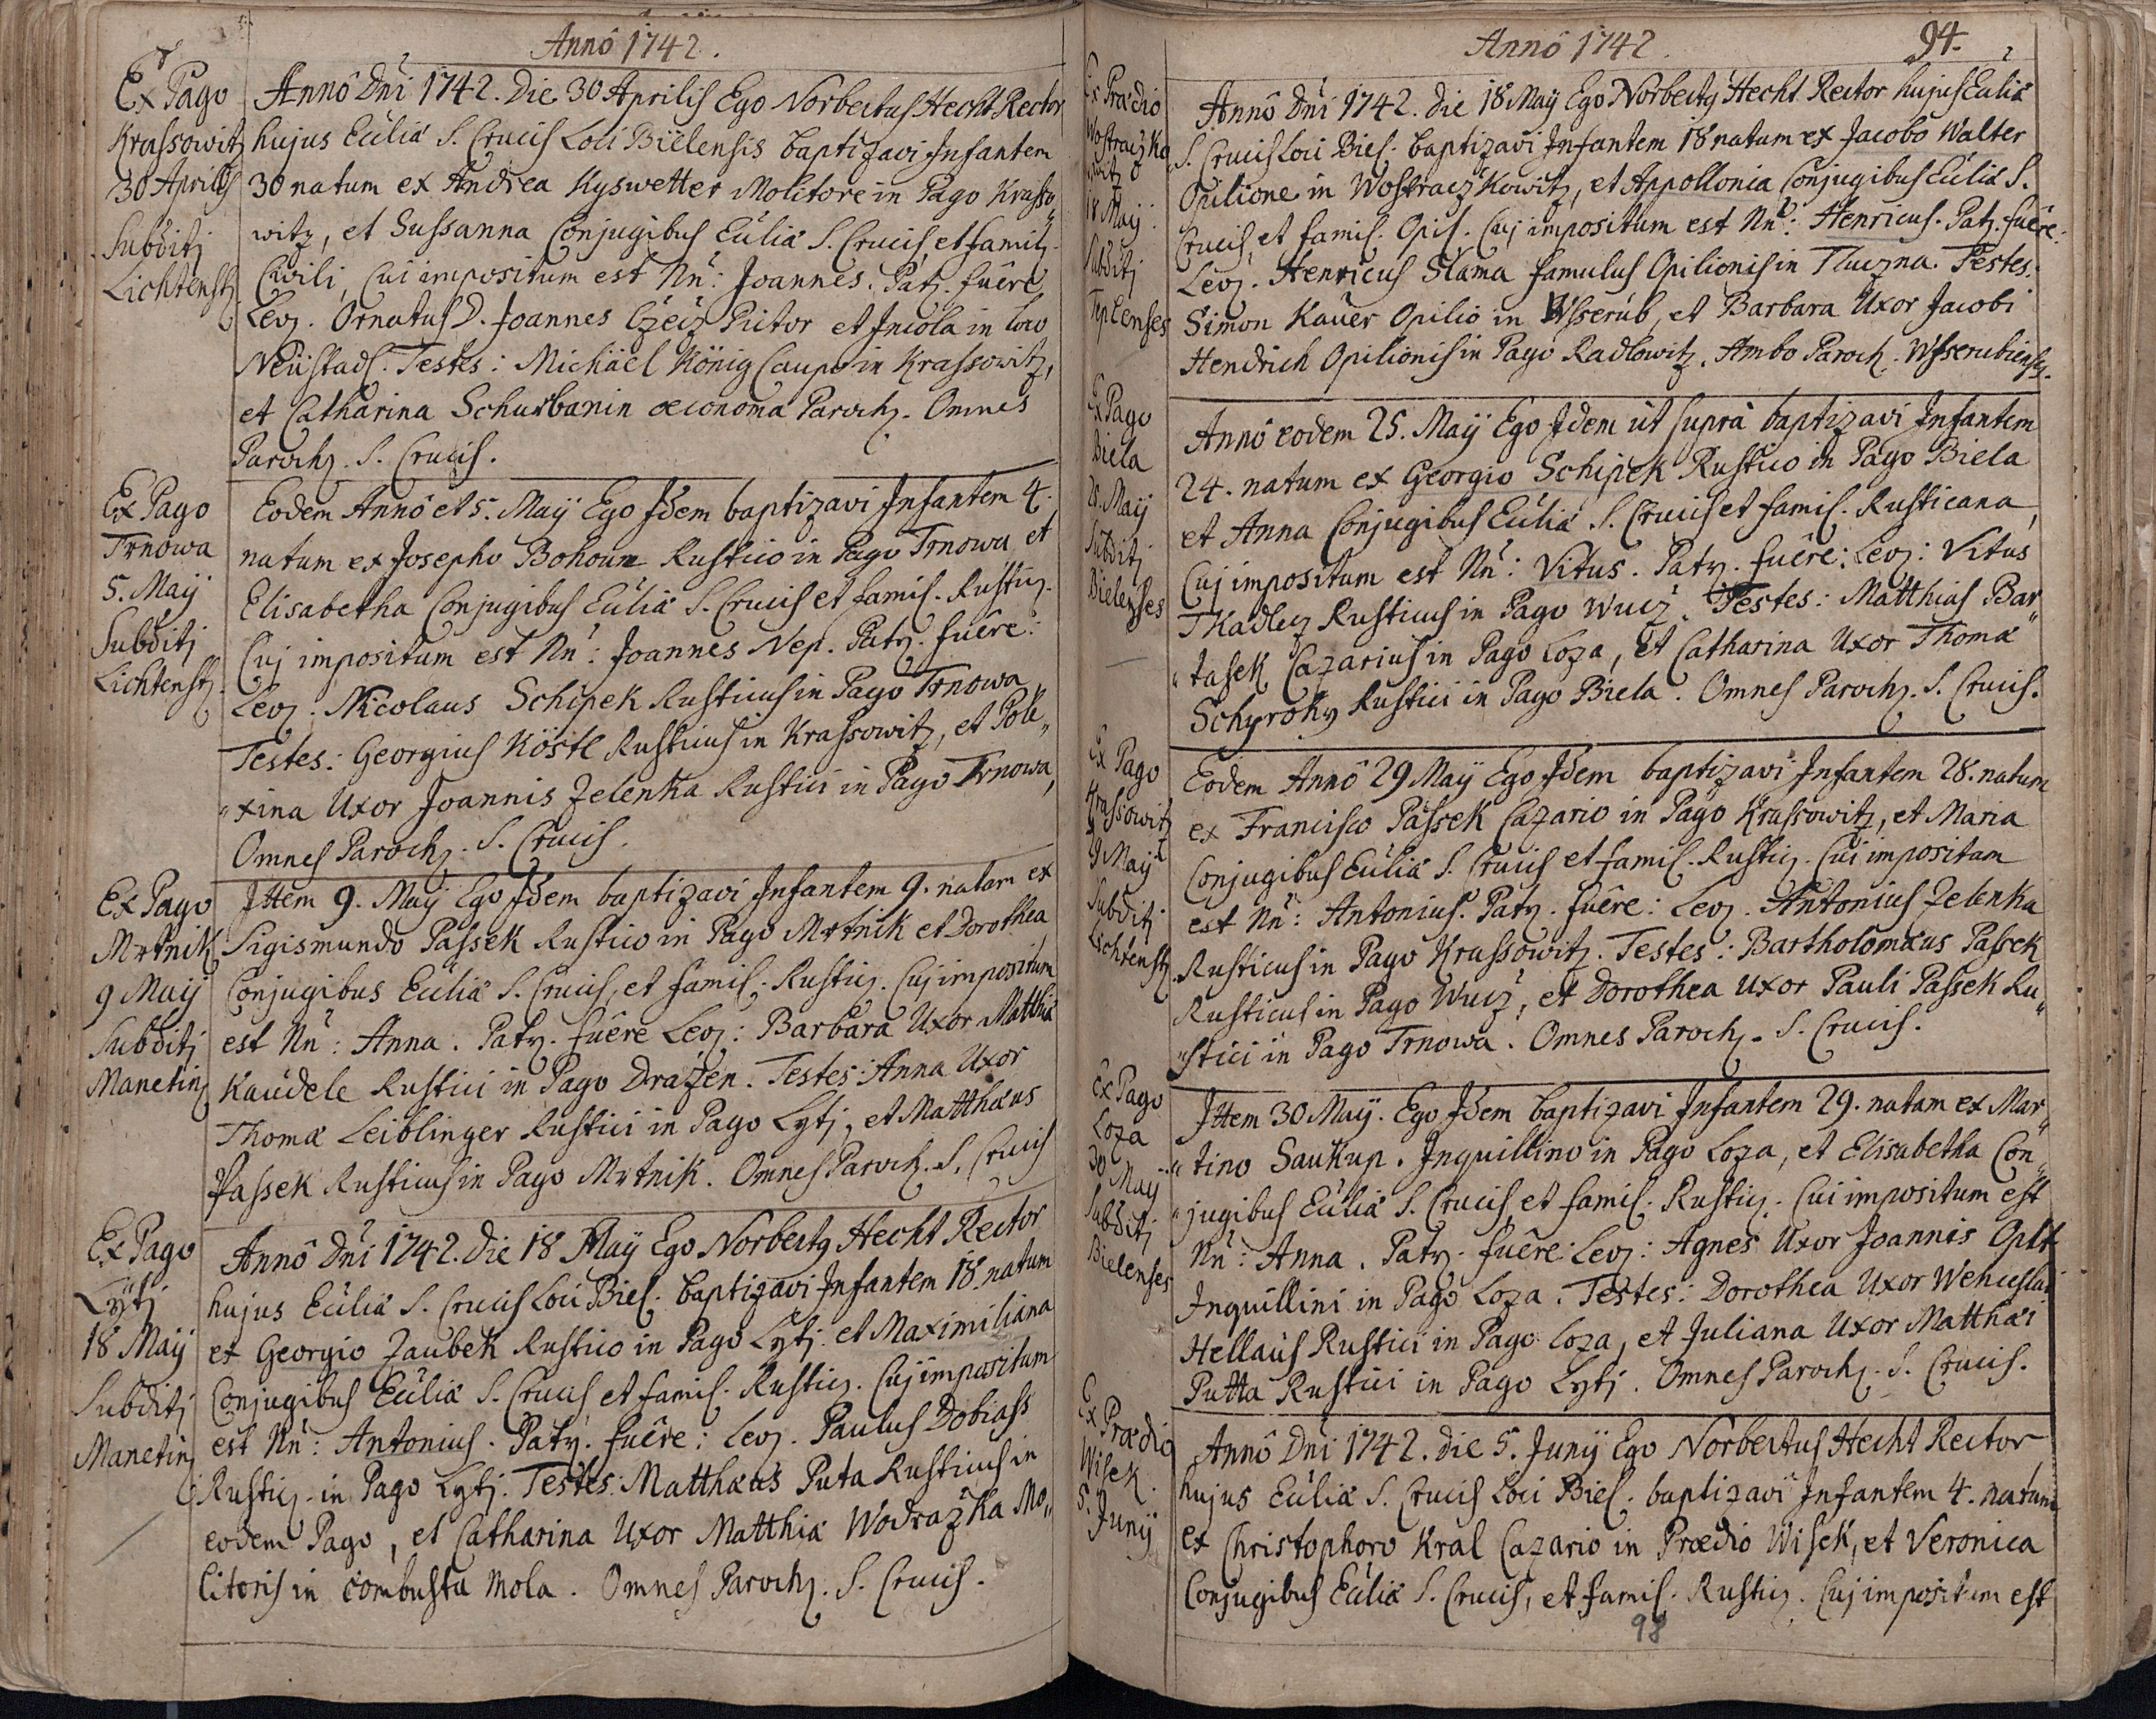 Annô 1742.
Ex Pago
Krassowitz
30 Aprilis
Subditj
Lichtenstz.
Annô Dni 1742. Die 30 Aprilis Ego Norbertus Hecht Rector
hujus Eccliæ S. Crucis Loci Bielensis baptizavi Infantem
30 natum ex Andrea Kyswetter Molitore in Pago Krasso„
witz, et Sussanna Conjugibus Eccliæ S. Crucis, et familz.
Civili, Cui impositum est Nn: Joannes. Patz. fuêre
Levz. Ornatus D. Joannes Czeiz Pictor et Incola in loco
Neüstadl. Testes: Michäel König Caupo in Krassowitz,
et Catharina Schurbanin œconoma Parochz. Omnes
Parochz. S. Crucis.
Ex Pago
Trnowa
5. Maij
Subditj
Lichtenstz.
Eodem Annô et 5. Maÿ Ego Idem baptizavi Infantem 4.
natum ex Josepho Bohoun Rustico in Pago Trnowa et
Elisabetha Conjugibus Eccliæ S. Crucis et famil. Rusticz.
Cuj impositum est Nn: Joannes Nep. Patz. fuêre:
Levz: Nicolaus Schipek Rusticus in Pago Trnowa
Testes: Georgius Köstl Rusticus in Krassowitz, et Pole„
„xina Uxor Joannis Zelenka Rustici in Pago Trnowa,
Omnes Parochz. S. Crucis.
Ex Pago
Mrtnik
9 Maij
Subditj
Manetinz
Ittem 9. Maÿ Ego Idem baptizavi Infantem 9. natam ex
Sigismundo Passek Rustico in Pago Mrtnik et Dorothea
Conjugibus Eccliæ S. Crucis, et famil. Rusticz. Cuj impositum
est Nn: Anna. Patz. fuêre Levz: Barbara Uxor Matthiæ
Kaudele Rustici in Pago Dražen. Testes: Anna Uxor
Thomæ Leiblinger Rustici in Pago Lytj, et Matthæus
Passek Rusticus in Pago Mrtnik. Omnes Paroch. S. Crucis
Ex Pago
Lÿtj
18 Maij
Subditj
Manetinz
Annô Dni 1742. die 18 Maÿ Ego Norbertq Hecht Rector
hujus Eccliæ S. Crucis Loci Biel. baptizavi Infantem 18. natum
ex Georgio Zaubek Rustico in Pago Lytj et Maximiliana
Conjugibus Eccliæ S. Crucis et famil. Rusticz. Cuj impositum
est Nn: Antonius. Patz. fuêre: Levz. Paulus Dobiass
Rusticz. in Pago Lytj. Testes: Matthæus Puta Rusticus in
eodem Pago, et Catharina Uxor Matthiæ Wodražka Mo„
litoris in combusta mola. Omnes Parochz. S. Crucis.
Annô 1742
94.
Ex Prædio
Wostraczko
witz
18 Maij.
Subditj
Teplenses
Annô Dni 1742. die 18 Maÿ Ego Norbertq Hecht Rector hujus Eccliæ
S. Crucis Loci Biel. baptizavi Infantem 18 natum ex Jacobo Walter
Opilione in Wostraczkowitz, et Appollonia Conjugibus Eccliæ S.
Crucis, et famil. Opil. Cuj impositum est Nn: Henricus. Patz. fuêre.
Levz. Henricus Slama famulus Opilionis in Tluczna. Testes.
Simon Kauer Opilio in Wsserub, et Barbara Uxor Jacobi
Hendrich Opilionis in Pago Radlowitz. Ambo Paroch. Wsserubiensz.
Ex Pago
Biela
25. Maij
Subditj
Bielenses
Annô eodem 25. Maÿ Ego Idem ut supra baptizavi Infantem
24. natum ex Georgio Schipek Rustico in Pago Biela
et Anna Conjugibus Eccliæ S. Crucis et famil. Rusticana,
Cuj impositum est Nn: Vitus. Patz. fuêre: Levz: Vitus
Tkadlez Rusticus in Pago Wucz. Testes: Matthias Bar„
„tasek Cazarius in Pago Loza, et Catharina Uxor Thomæ
Schyroky Rustici in Pago Biela. Omnes Parochz. S. Crucis.
Ex Pago
Krassowitz
29 Maij
Subditj
Lichtenstz.
Eodem Annô 29 Maÿ Ego Idem baptizavi Infantem 28. natum
ex Francisco Passek Cazario in Pago Krassowitz, et Maria
Conjugibus Eccliæ S. Crucis et famil. Rusticz. Cui impositum
est Nn: Antonius. Patz. fuêre: Levz. Antonius Zelenka
Rusticus in Pago Krassowitz. Testes: Bartholomæus Passek
Rusticus in Pago Wucz, et Dorothea Uxor Pauli Passek Ru„
„stici in Pago Trnowa. Omnes Parochz. S. Crucis.
Ex Pago
Loza
30 May
Subditj
Bielenses
Ittem 30 Maÿ. Ego Idem baptizavi Infantem 29. natam ex Mar„
„tino Saukup. Inquillino in Pago Loza, et Elisabetha Con„
„jugibus Eccliæ S. Crucis, et famil. Rusticz. Cui impositum est
Nn: Anna. Patz. fuêre: Levz: Agnes Uxor Joannis Oplt
Inquillini in Pago Loza. Testes: Dorothea Uxor Wenceslai
Hellaus Rustici in Pago Loza, et Juliana Uxor Matthæi
Putta Rustici in Pago Lytj. Omnes Parochz. S. Crucis.
Ex Prædio
Wisek.
5. Junij
Annô Dni 1742. die 5. Junÿ Ego Norbertus Hecht Rector
hujus Eccliæ S. Crucis Loci Biel. baptizavi Infantem 4. natum
ex Christophoro Kral Cazario in Prædio Wisek, et Veronica
Conjugibus Eccliæ S. Crucis, et famil. Rusticz. Cuj impositum est
98